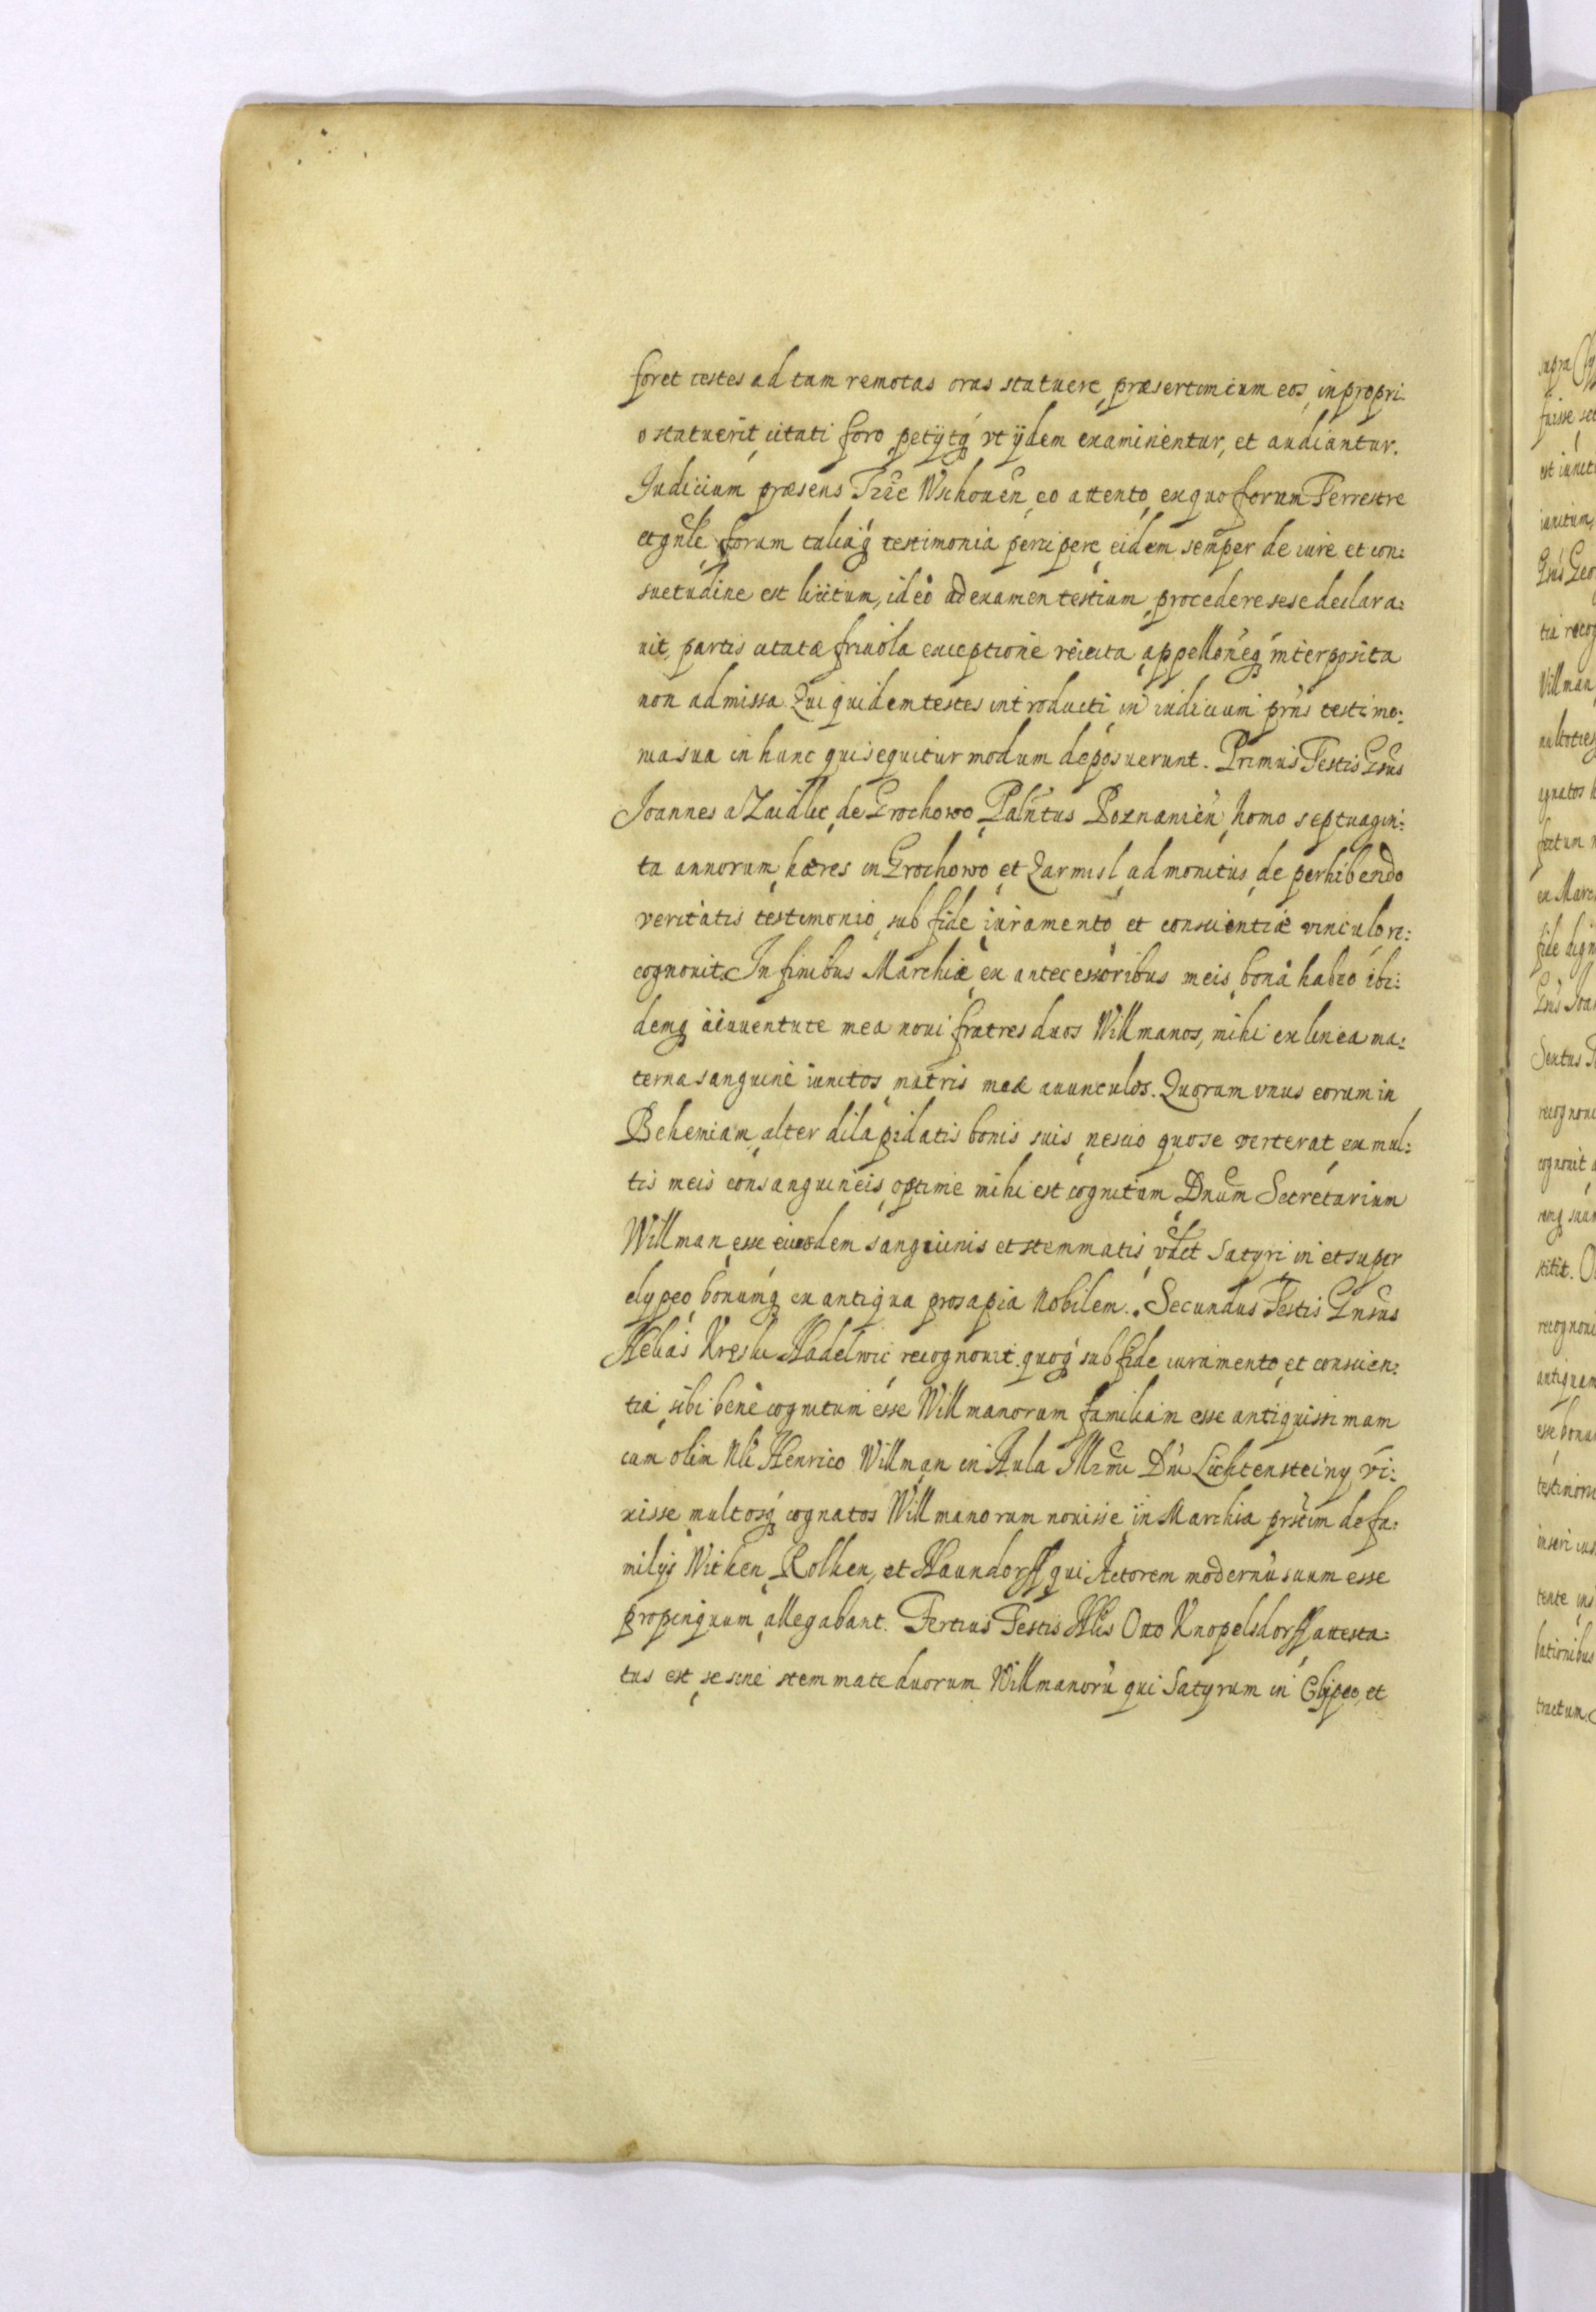 foret testes ad tam remotas oras statuere, præsertim cum eos, in propri-
o statuerit, citati foro, petijtq́ʒ vt ijdem examinentur, et audiantur.
Iudicium præsens Trre Wschouen̄, eo attento, ex quo forum Terrestre
et gn̄le, forum taliaq́ʒ testimonia percipere, eidem semper de iure et con:
suetudine est licitum, ideo ad examen testium, procedere sese declara:
uit, partis citatæ friuola exceptione reiecta, appellōneqʒ interposita
non admissa. Qui quidem testes introducti, in iudicium prīus testimo:
nia sua in hunc qui sequitur modum deposuerunt. Primus Testis Gn̄sus
Joannes a Zaidlic, de Grochowo, Paln̄tus Poznanien̄, homo septuagin:
ta annorum, hæres in Grochowo, et Zarmisl, admonitus, de perhibendo
veritatis testimonio, sub fide, iuramento et conscientiæ vinculo re:
cognouit. In finibus Marchiæ, ex antecessoribus meis, bona habeo ibi:
demqʒ a iuuentute mea noui fratres duos Willmanos, mihi ex linea ma:
terna sanguine iunctos, matris meæ auunculos. Quorum vnus eorum in
Behemiam, alter dilapidatis bonis suis, nescio quo se verterat, ex mul:
tis meis consanguineis, optime mihi est cognitum, Dnūm Secretarium
Willman, esse eiusdem sanguinis et stemmatis, vdēt Satyri in et super
clypeo, bonumq́ʒ ex antiqua prosapia Nobilem. Secundus Testis Gn̄sus
Helias Kreslic Hadelwic recognouit quoq́ʒ sub fide, iuramento, et conscien:
tia, sibi bene cognitum esse Willmanorum familiam esse antiquissimam
cum olim Nli Henrico Willman in Aula Illr̄mi Dn̄i Lichtensteiny vi:
xisse, multosq́ʒ cognatos Willmanorum nouisse in Marchia prs̄tim de fa:
milijs Withen, Rolken, et Haundorff, qui Actorem modernū suum esse
propinquum, allegabant. Tertius Testis Nl̄is Otto Knopelsdorff, attesta:
tus est, se sene stemmate duorum Willmanorū qui Satyrum in Clypeo, et